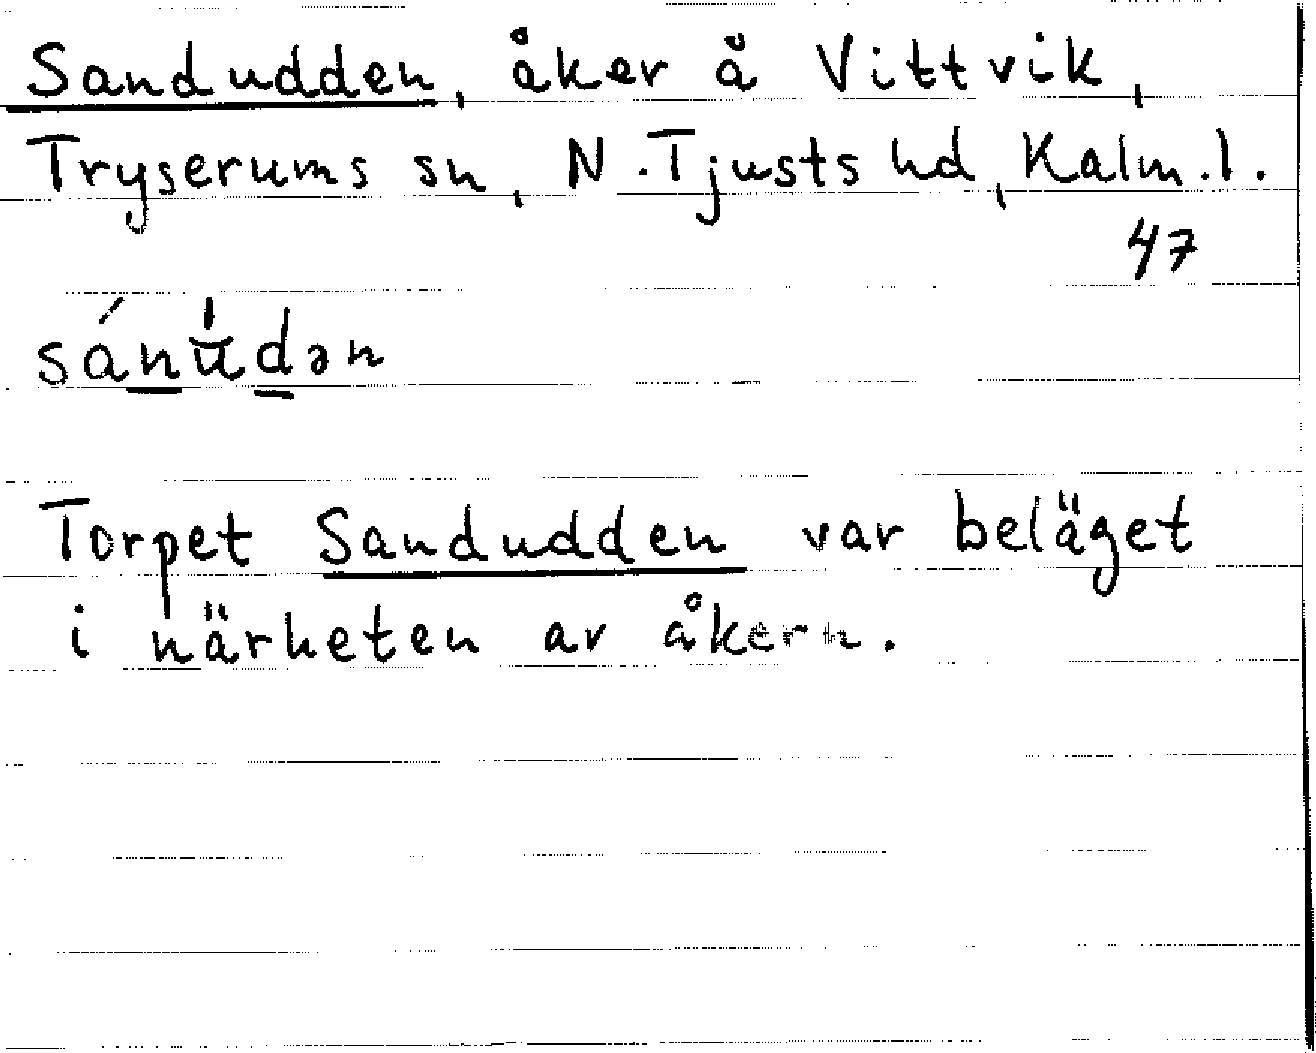 Sandudden, åker å Vittvik,
Tryserums sn, N. Tjusts hd, Kalm. l.
47
sánu̍dən
Torpet Sandudden var beläget
i närheten av åkern.